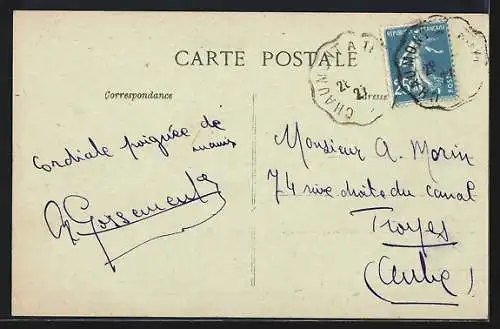 CARTE POSTALE
Correspondance
Adresse
CHAUMONT A T
CHAUMO
25
POSTES
Cordiale poignée de
mains
Gossement
Monsieur A. Morin
74 rive droite du canal
Troyes
(Aube)